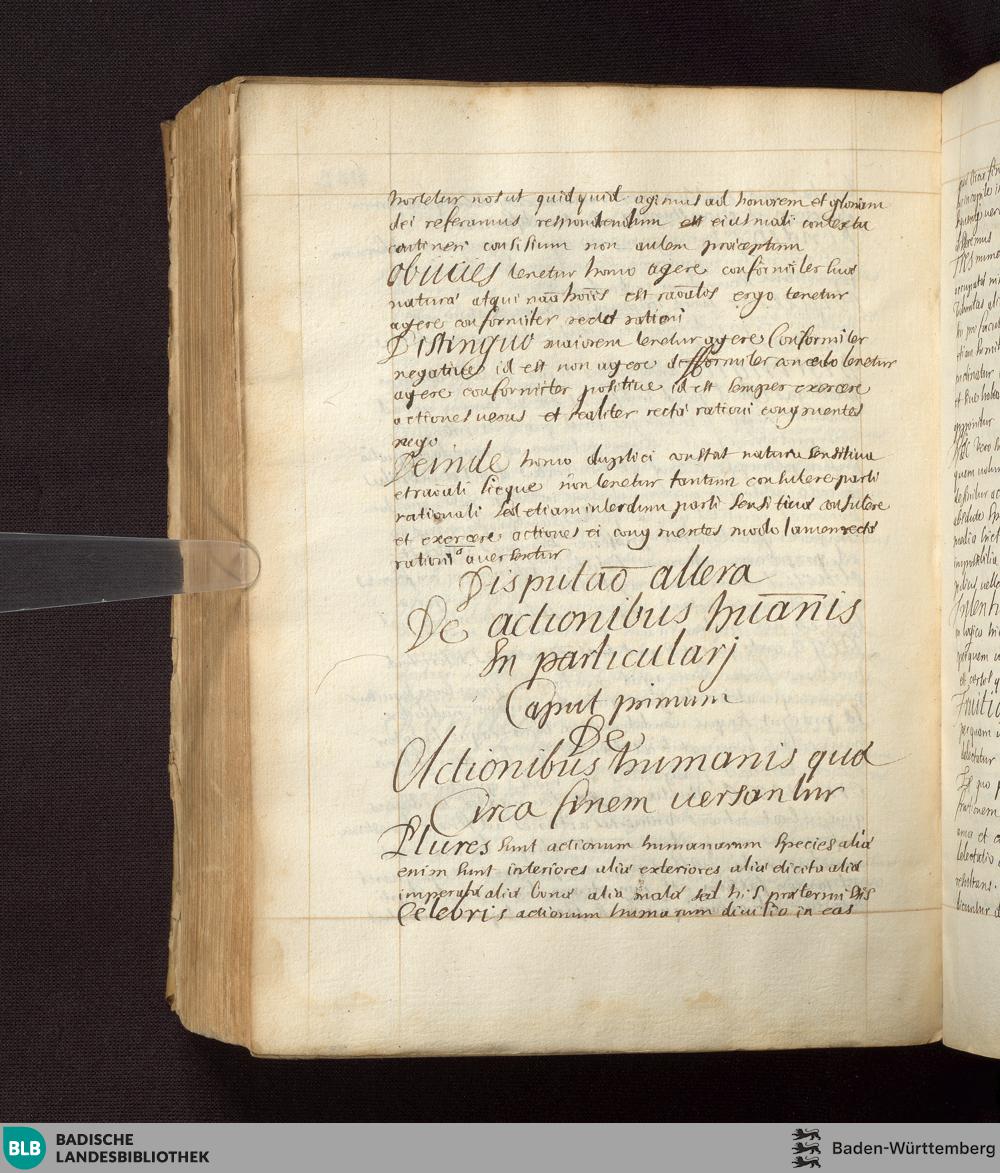 hortetur nos ut quidquid agimus ad honorem et gloriam
dei referamus respondendum est eiusmodi contextu
contineri consilium non autem præceptum
obiicies tenetur homo agere conformiter suæ
naturæ atqui naā hoīis est raōalis ergo tenetur
agere conformiter rectæ rationi
Distinguo maiorem tenetur agere Conformiter
negative id est non agere difformiter concedo tenetur
agere conformiter positive id est semper exercere
actiones ueras et realiter rectæ rationi congruentes
nego
Deinde homo duplici constat natura sensitiua
et raōali sicque non tenetur tantum consulere parti
rationali sed etiam interdum parti sensitiuæ consulere
et exercere actiones ei congruentes modo tamen rectæ
rationi auersentur
Disputaō altera
De actionibus huānis
In particularj
Caput primum
De
Actionibus humanis quæ
Circa finem uersantur
Plures sunt actionum humanarum species aliæ
enim sunt interiores aliæ exteriores aliæ elicitæ aliæ
imperatæ aliæ bonæ aliæ malæ sed his prætermissis
Celebris actionum humarum diuisio in eas
BLB
BADISCHE
LANDESBIBLIOTHEK
Baden-Württemberg